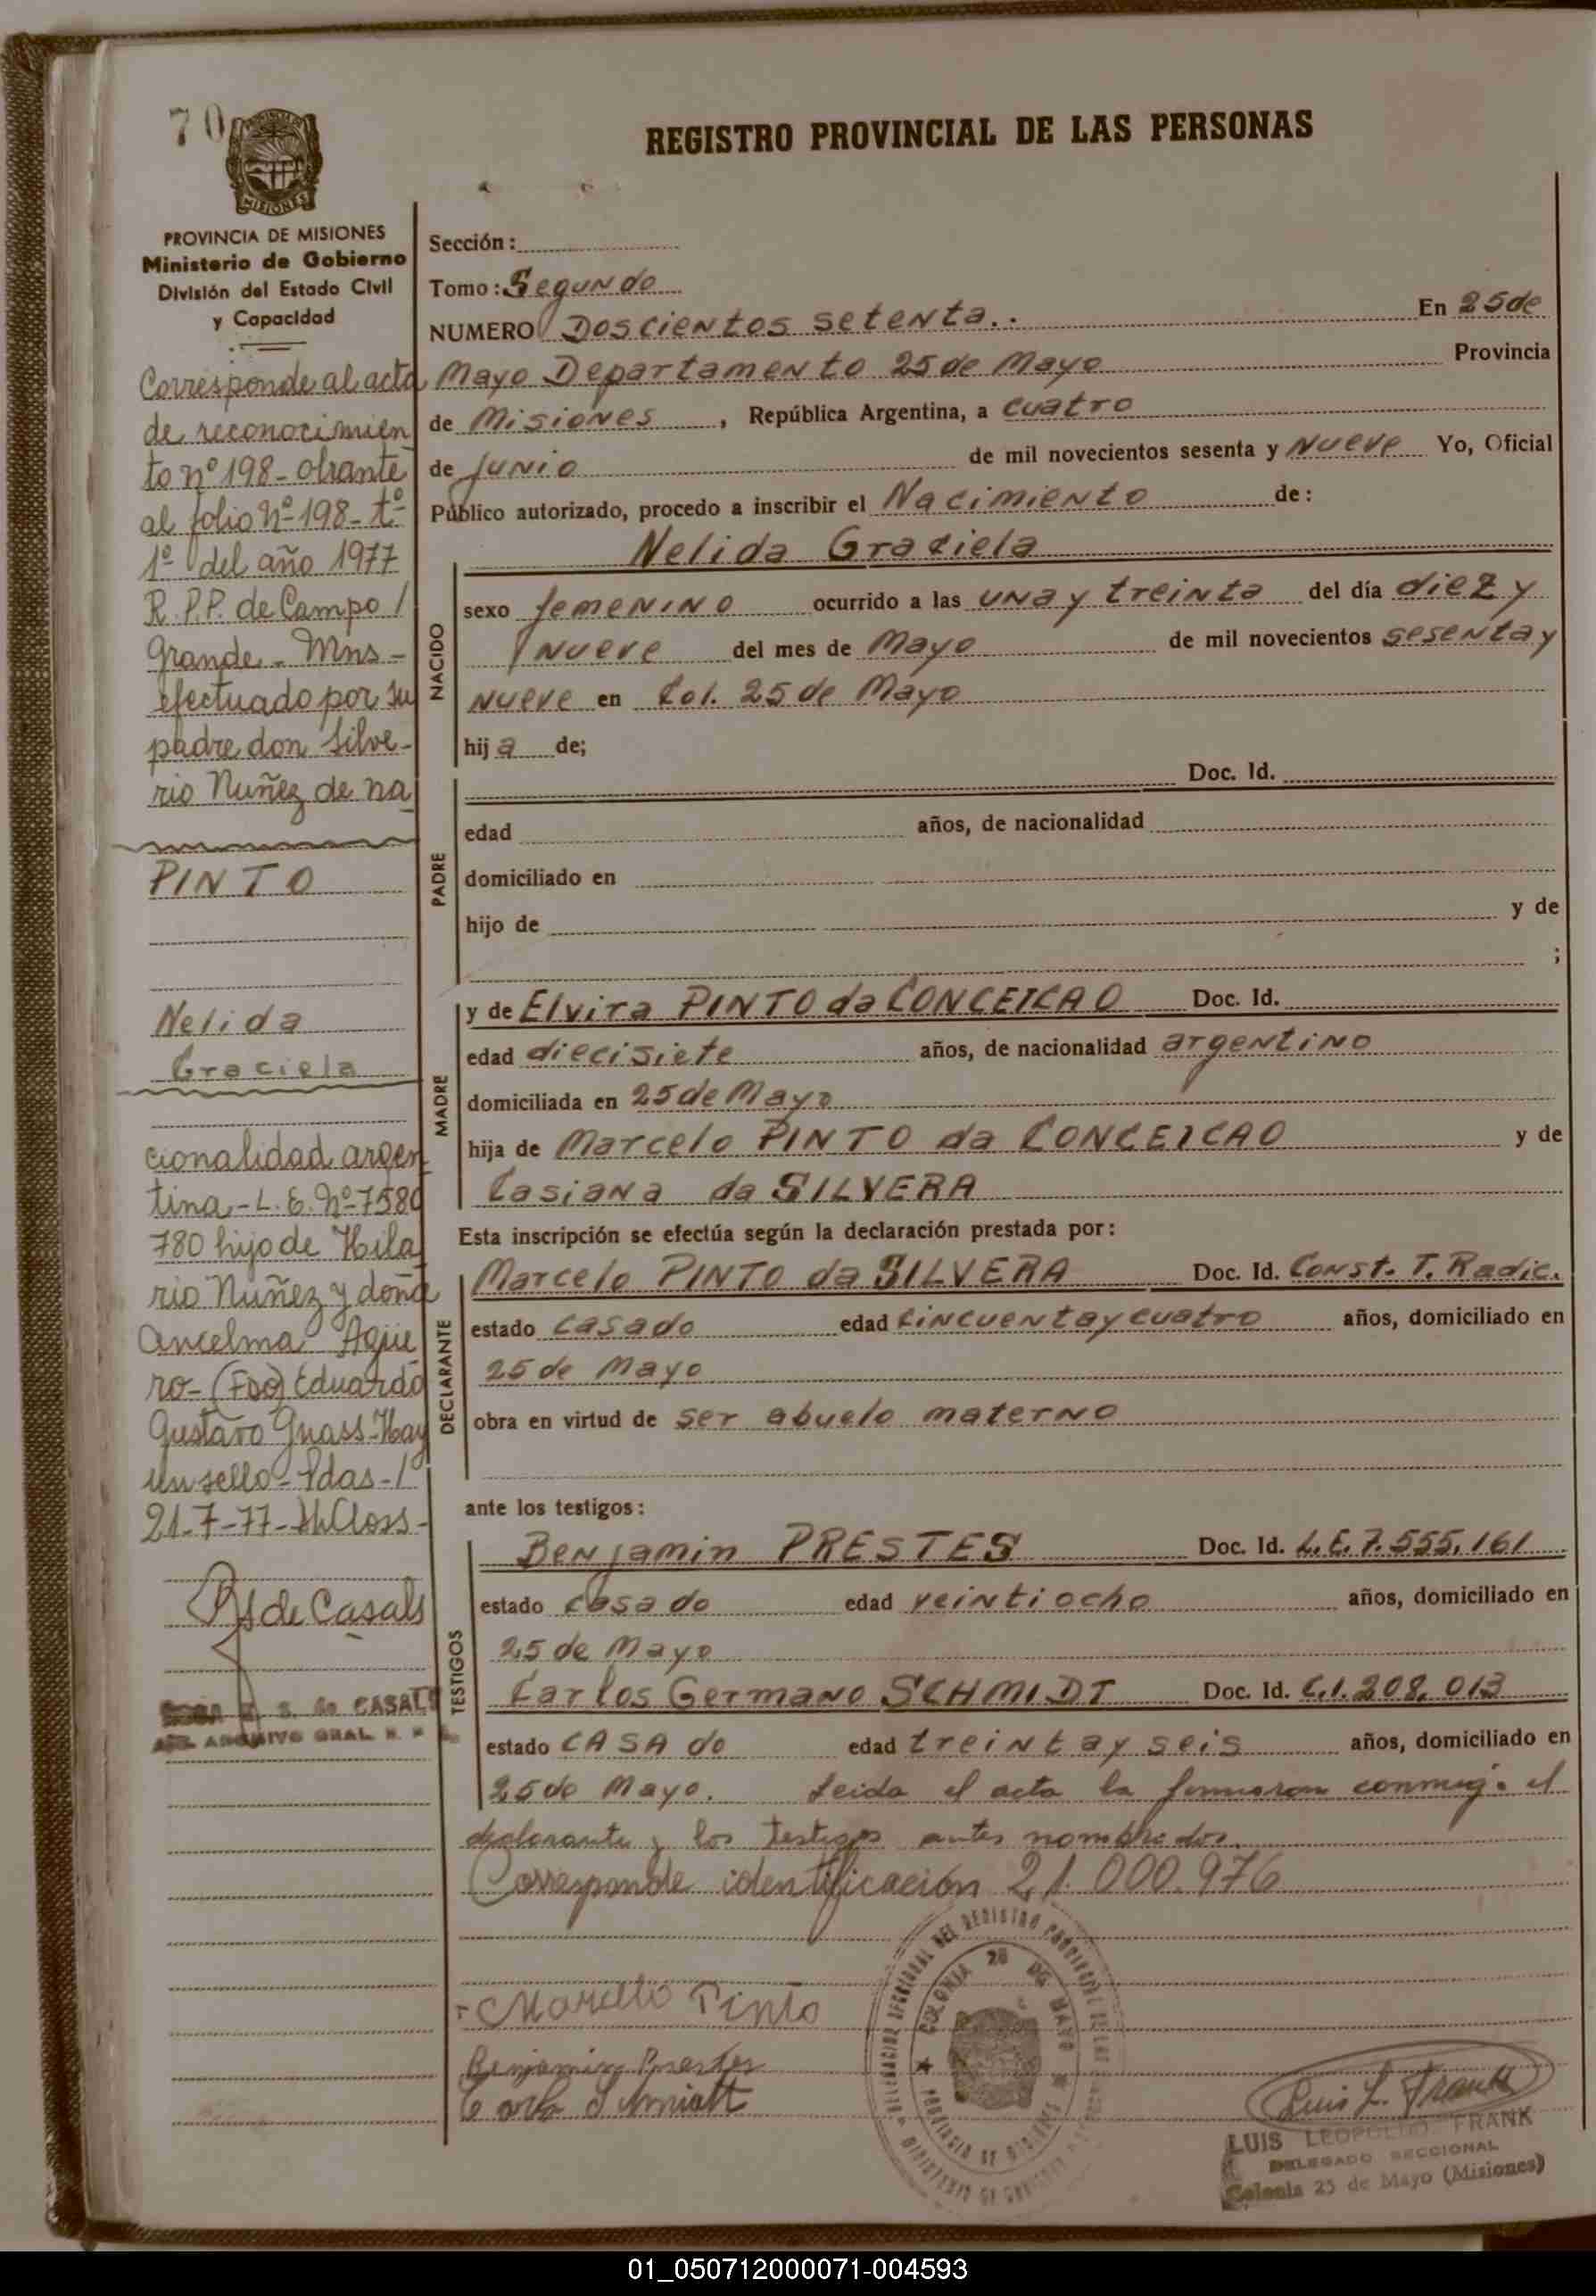 70
REGISTRO PROVINCIAL DE LAS PERSONAS
MISIONES
PROVINCIA DE MISIONES
Ministerio de Gobierno
División del Estado Civil
y Capacidad
Corresponde al acta
de reconocimien
to nº 198 - obrante
al folio Nº 198 - tº
1º del año 1977
R.P.P. de Campo /
Grande - Mns -
efectuado por su
padre don Silve-
rio Nuñez de na
PINTO
Nelida
Graciela
cionalidad argen
tina - L. E. Nº 7580
780 hijo de Hila
rio Nuñez y doña
Ancelma Agüe
ro - (Fdo) Eduardo
Gustavo Gnass - Hay
un sello - Pdas - /
21-7-77 - Closs -
de Casals
S. de CASALS
ARCHIVO GRAL
Sección:
Tomo: Segundo
NUMERO Doscientos setenta.. En 25 de
Mayo Departamento 25 de Mayo Provincia
de Misiones, República Argentina, a cuatro
de junio de mil novecientos sesenta y Nueve Yo, Oficial
Público autorizado, procedo a inscribir el Nacimiento de:
NACIDO
Nelida Graciela
sexo femenino ocurrido a las una y treinta del día diez y
nueve del mes de Mayo de mil novecientos sesenta y
nueve en Col. 25 de Mayo
hija de;
PADRE
Doc. Id.
edad años, de nacionalidad
domiciliado en
hijo de y de
;
MADRE
y de Elvira PINTO da CONCEICAO Doc. Id.
edad diecisiete años, de nacionalidad argentino
domiciliada en 25 de Mayo
hija de Marcelo PINTO da CONCEICAO y de
Casiana da SILVERA
Esta inscripción se efectúa según la declaración prestada por:
DECLARANTE
Marcelo PINTO da SILVERA Doc. Id. Const. T. Radic.
estado casado edad cincuenta y cuatro años, domiciliado en
25 de Mayo
obra en virtud de ser abuelo materno
ante los testigos:
TESTIGOS
Benjamin PRESTES Doc. Id. L.E. 7.555.161
estado casado edad veintiocho años, domiciliado en
25 de Mayo
Carlos Germano SCHMIDT Doc. Id. C.I. 208.013
estado CASAdo edad treinta y seis años, domiciliado en
25 de Mayo. Leida el acta la firmaron conmigo el
declarante y los testigos antes nombrados.
Corresponde identificación 21.000.976
Marcelo Pinto
Benjamin Prestes
Carlos Schmidt
DELEGACION SECCIONAL DEL REGISTRO PROVINCIAL DE LAS
COLONIA 25 DE MAYO
PROVINCIA DE MISIONES
Luis L. Frank
LUIS LEOPOLDO FRANK
DELEGADO SECCIONAL
Colonia 25 de Mayo (Misiones)
01_050712000071-004593